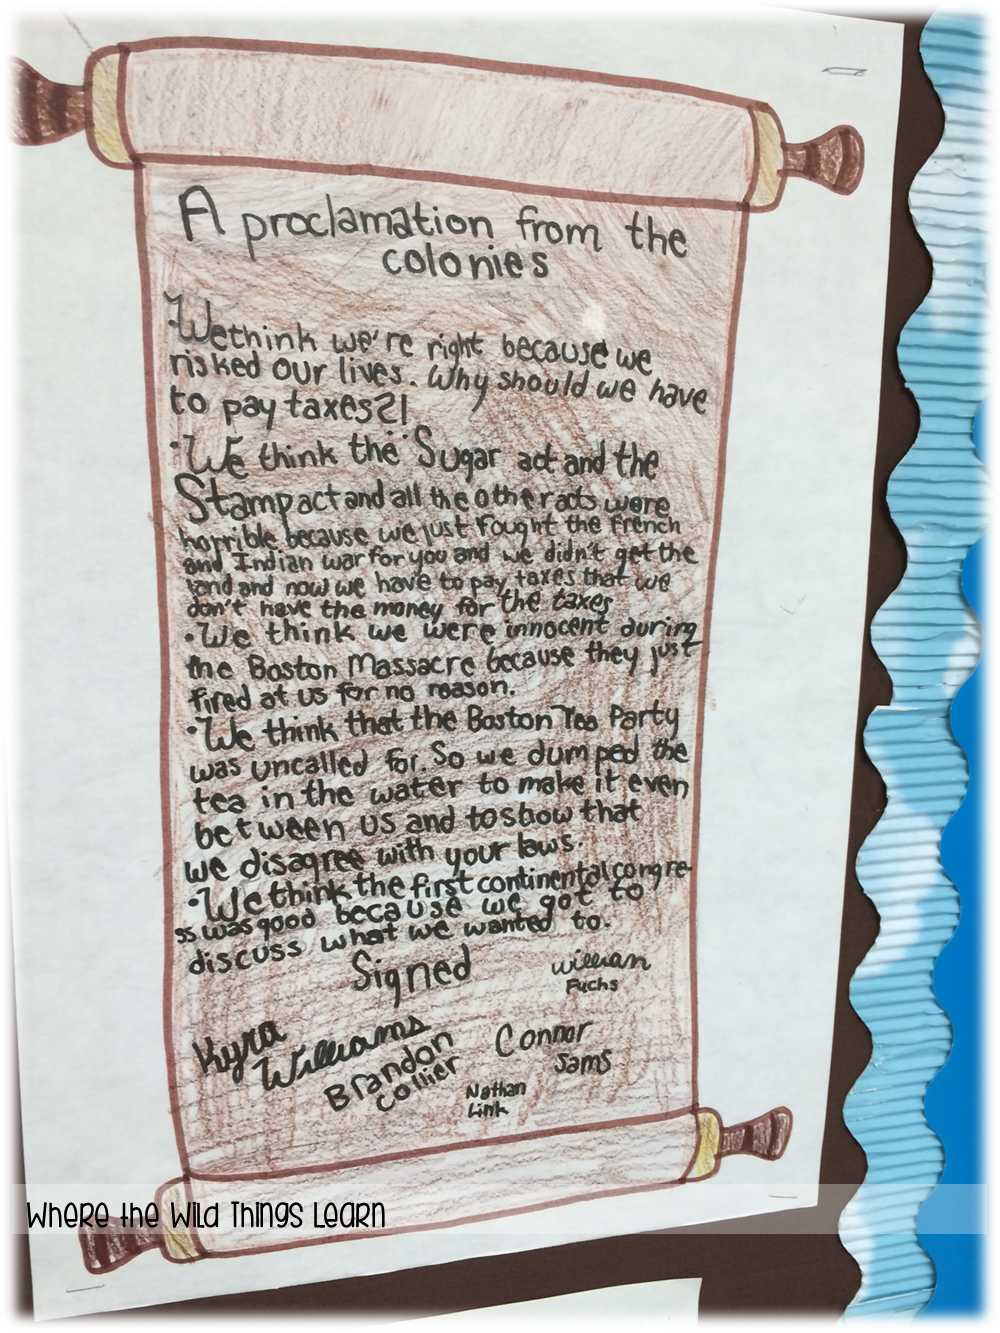 A proclamation from the
colonies
·We think we're right because we
risked our lives. Why should we have
to pay taxes?!
·We think the Sugar act and the
Stamp act and all the other acts were
horrible because we just fought the french
and Indian war for you and we didn't get the
land and now we have to pay taxes that we
don't have the money for the taxes
·We think we were innocent during
the Boston Massacre because they just
fired at us for no reason.
·We think that the Boston Tea Party
was uncalled for. So we dumped the
tea in the water to make it even
between us and to show that
we disagree with your laws.
·We think the first continental congre-
ss was good because we got to
discuss what we wanted to.
Signed
William
Fuchs
Kyra
Williams
Brandon
Collier
Connor
Sams
Nathan
Link
Where the Wild Things Learn